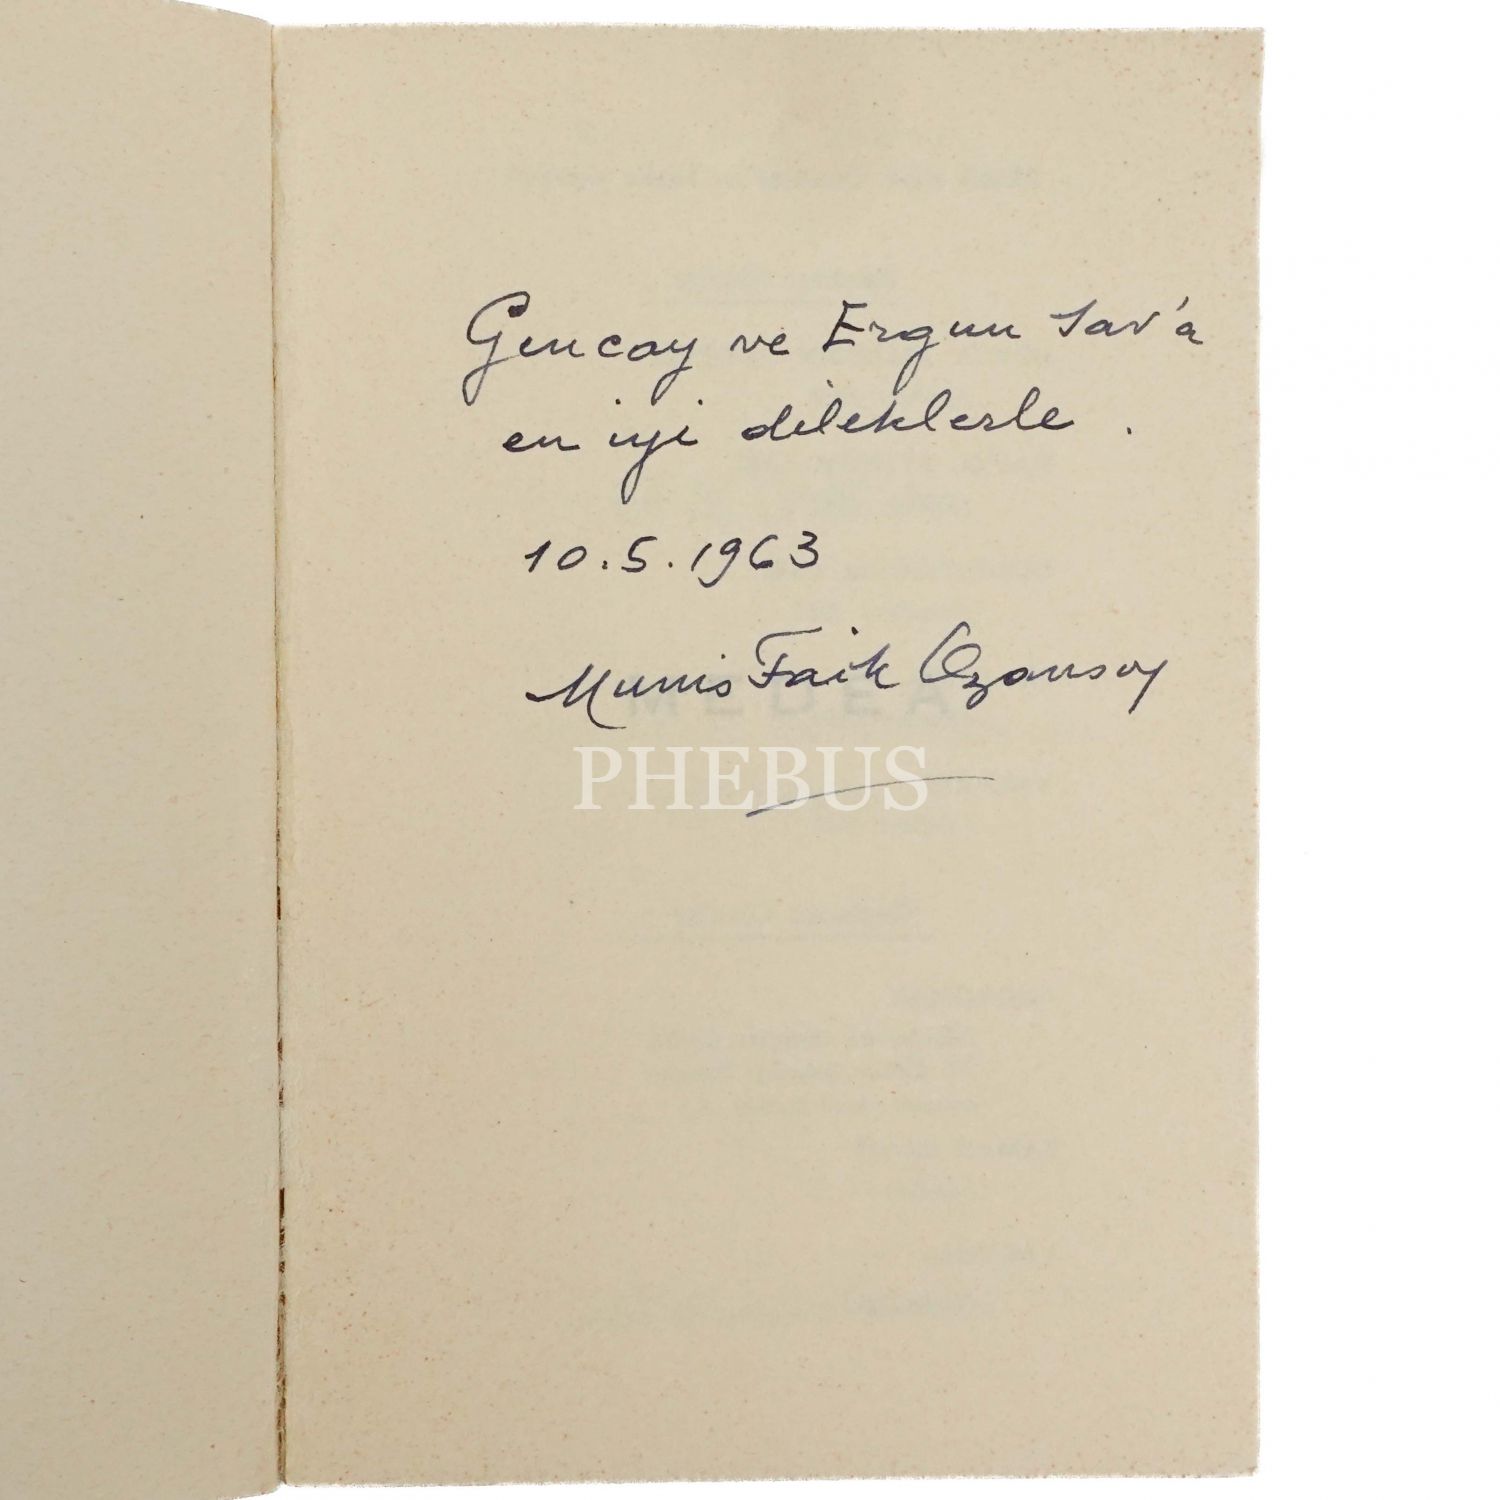 Gencay ve Ergun Sav'a
en iyi dileklerle .
10.5.1963
Munis Faik Ozansoy
MEDEA
PHEBUS